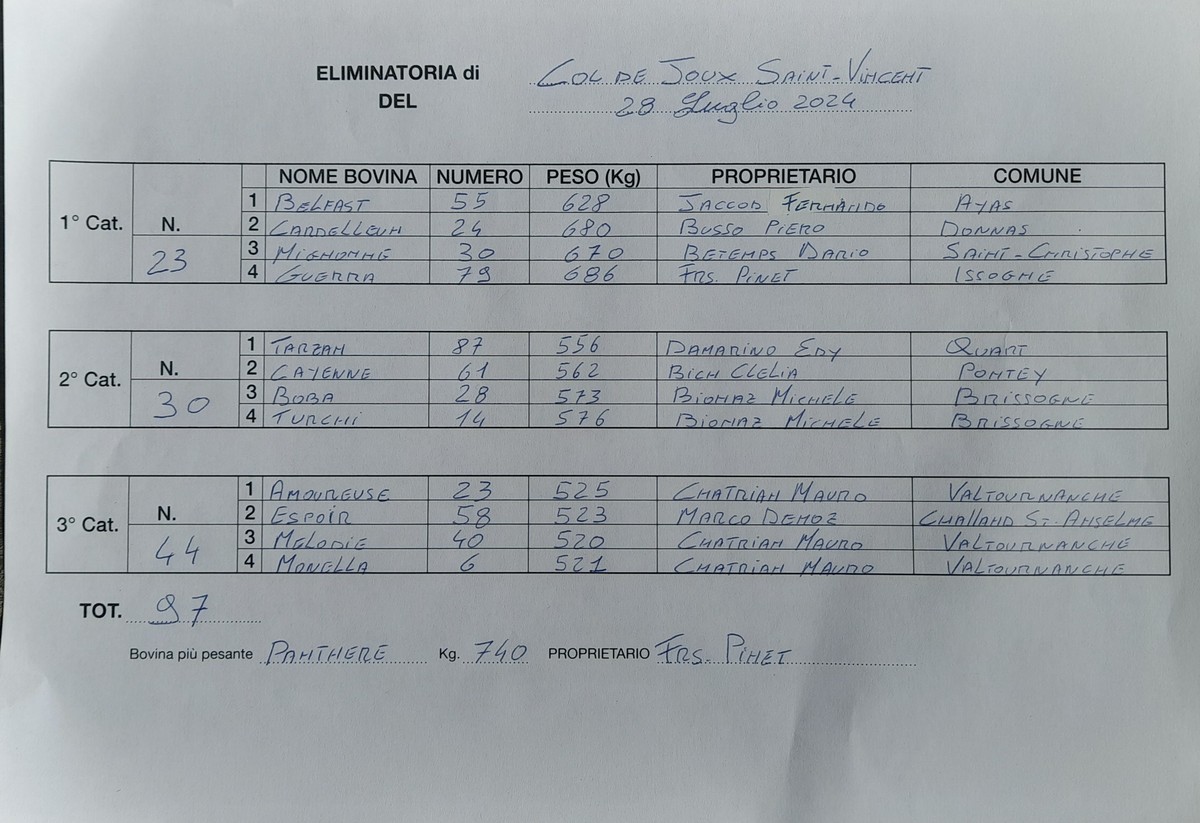 ELIMINATORIA di COL DE JOUX SAINT-VINCENT
DEL 28 Luglio 2024
NOME BOVINA NUMERO PESO (Kg) PROPRIETARIO COMUNE
1° Cat. N. 23
1 BELFAST 55 628 JACCOD FERNANDO AYAS
2 CARDELLEUN 24 680 BUSSO PIERO DONNAS
3 MIGNONNE 30 670 BETEMPS DARIO SAINT-CHRISTOPHE
4 GUERRA 79 686 FRS. PINET ISSOGNE
2° Cat. N. 30
1 TARZAN 87 556 DAMARINO EDY QUART
2 CAYENNE 61 562 BICH CLELIA PONTEY
3 BOBA 28 573 BIONAZ MICHELE BRISSOGNE
4 TURCHI 14 576 BIONAZ MICHELE BRISSOGNE
3° Cat. N. 44
1 AMOUREUSE 23 525 CHATRIAN MAURO VALTOURNANCHE
2 ESPOIR 58 523 MARCO DEMOZ CHALLAND ST. ANSELME
3 MELODIE 40 520 CHATRIAN MAURO VALTOURNANCHE
4 MONELLA 6 521 CHATRIAN MAURO VALTOURNANCHE
TOT. 97
Bovina più pesante PANTHERE Kg. 740 PROPRIETARIO FRS. PINET